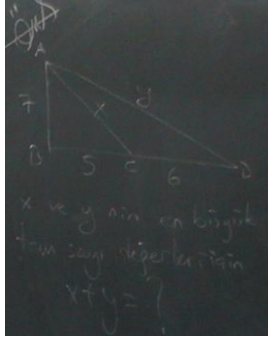 A
7
x
y
B
5
C
6
D
x ve y nin en büyük
tam sayı değerleri için
x+y= ?